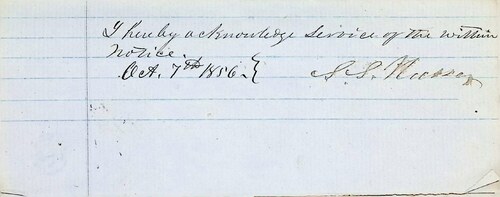 I hereby acknowledge service of the within
notice.
Oct. 7th 1856 } S. S.